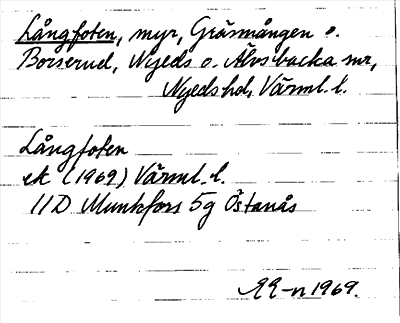 Långfoten, myr, Gräsmången o.
Borserud, Nyeds o. Älvsbacka snr,
Nyedshd, Värml. l.
Långfoten
ek (1969) Värml. l.
11D Munkfors 5g Östanås
EE-n 1969.